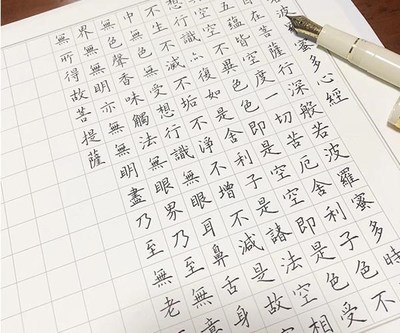 波蜜多心經
在菩薩行深般若波羅蜜多時
五蘊皆空度一切苦厄舍利子色不
空不異色色即是空空即是色受
行識亦復如是舍利子是諸法空相
不生不滅不垢不淨不增不減是故空
中無色無受想行識無眼耳鼻舌身
無色聲香味觸法無眼界乃至無意
界無無明亦無無明盡乃至無老
無所得故菩提薩